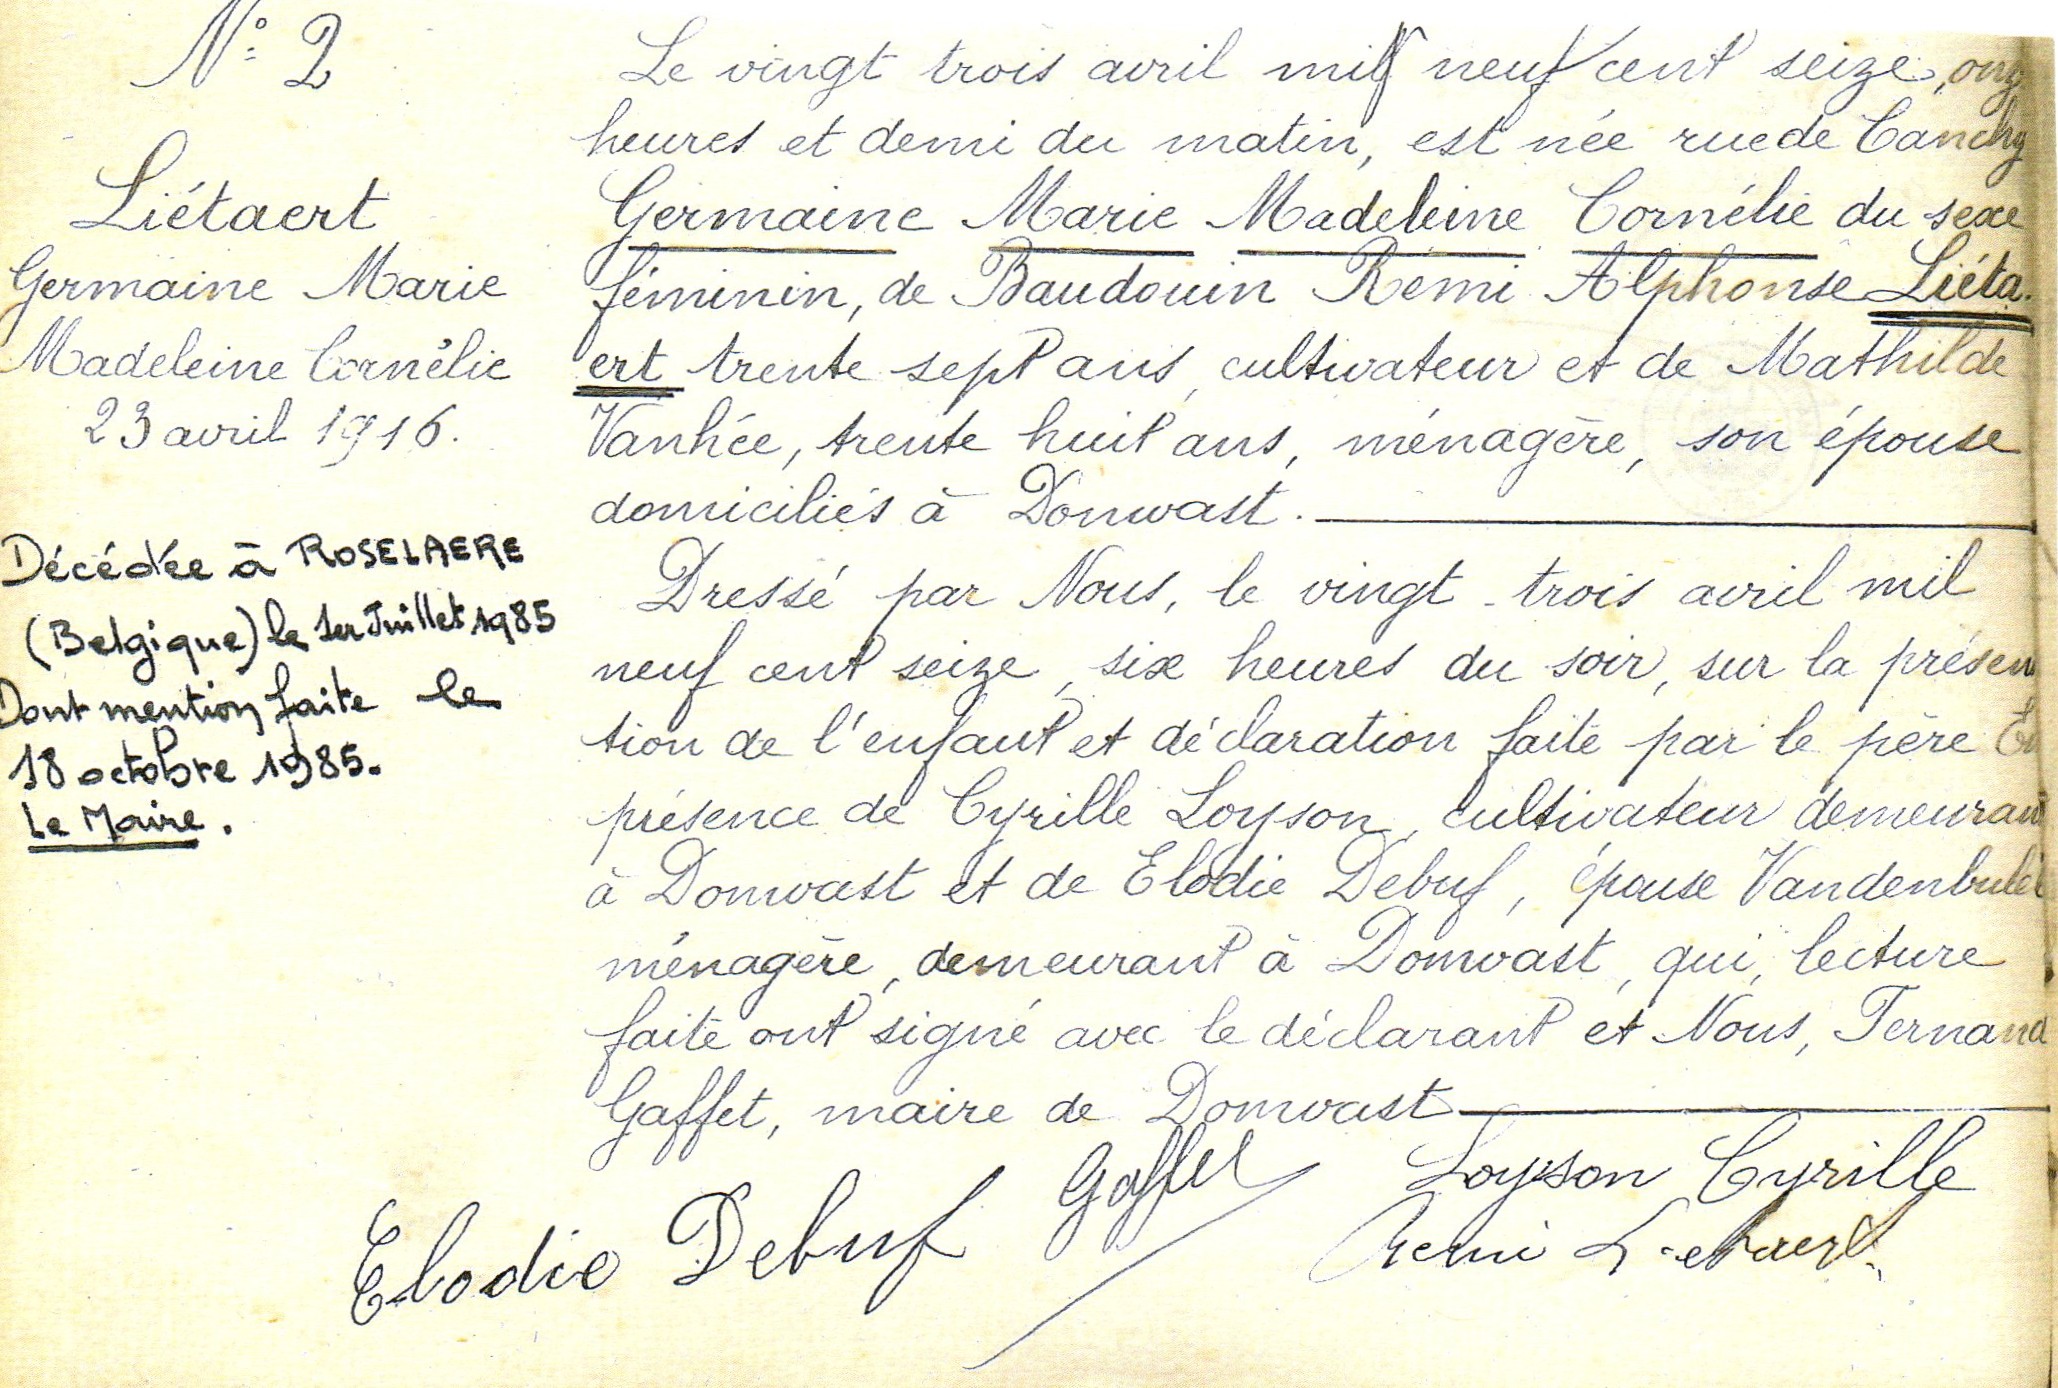 N° 2
Liétaert
Germaine Marie
Madeleine Cornélie
23 avril 1916.
Décédée à ROSELAERE
(Belgique) le 1er Juillet 1985
Dont mention faite le
18 octobre 1985.
Le Maire.
Le vingt trois avril mil neuf cent seize, onz
heures et demi du matin, est née rue de Canchy
Germaine Marie Madeleine Cornélie du sexe
féminin, de Baudouin Rémi Alphonse Liéta-
ert trente sept ans, cultivateur et de Mathilde
Vanhée, trente huit ans, ménagère, son épouse
domiciliés à Donvast.
Dressé par Nous, le vingt-trois avril mil
neuf cent seize, six heures du soir, sur la présen
tion de l'enfant et déclaration faite par le père En
présence de Cyrille Loyson, cultivateur demeurant
à Domvast et de Elodie Debuf, épouse Vandenbulc
ménagère, demeurant à Domvast, qui, lecture
faite ont signé avec le déclarant et Nous, Fernand
Gaffet, maire de Domvast
Elodie Debuf Gaffet Loyson Cyrille
Remi Lietaert